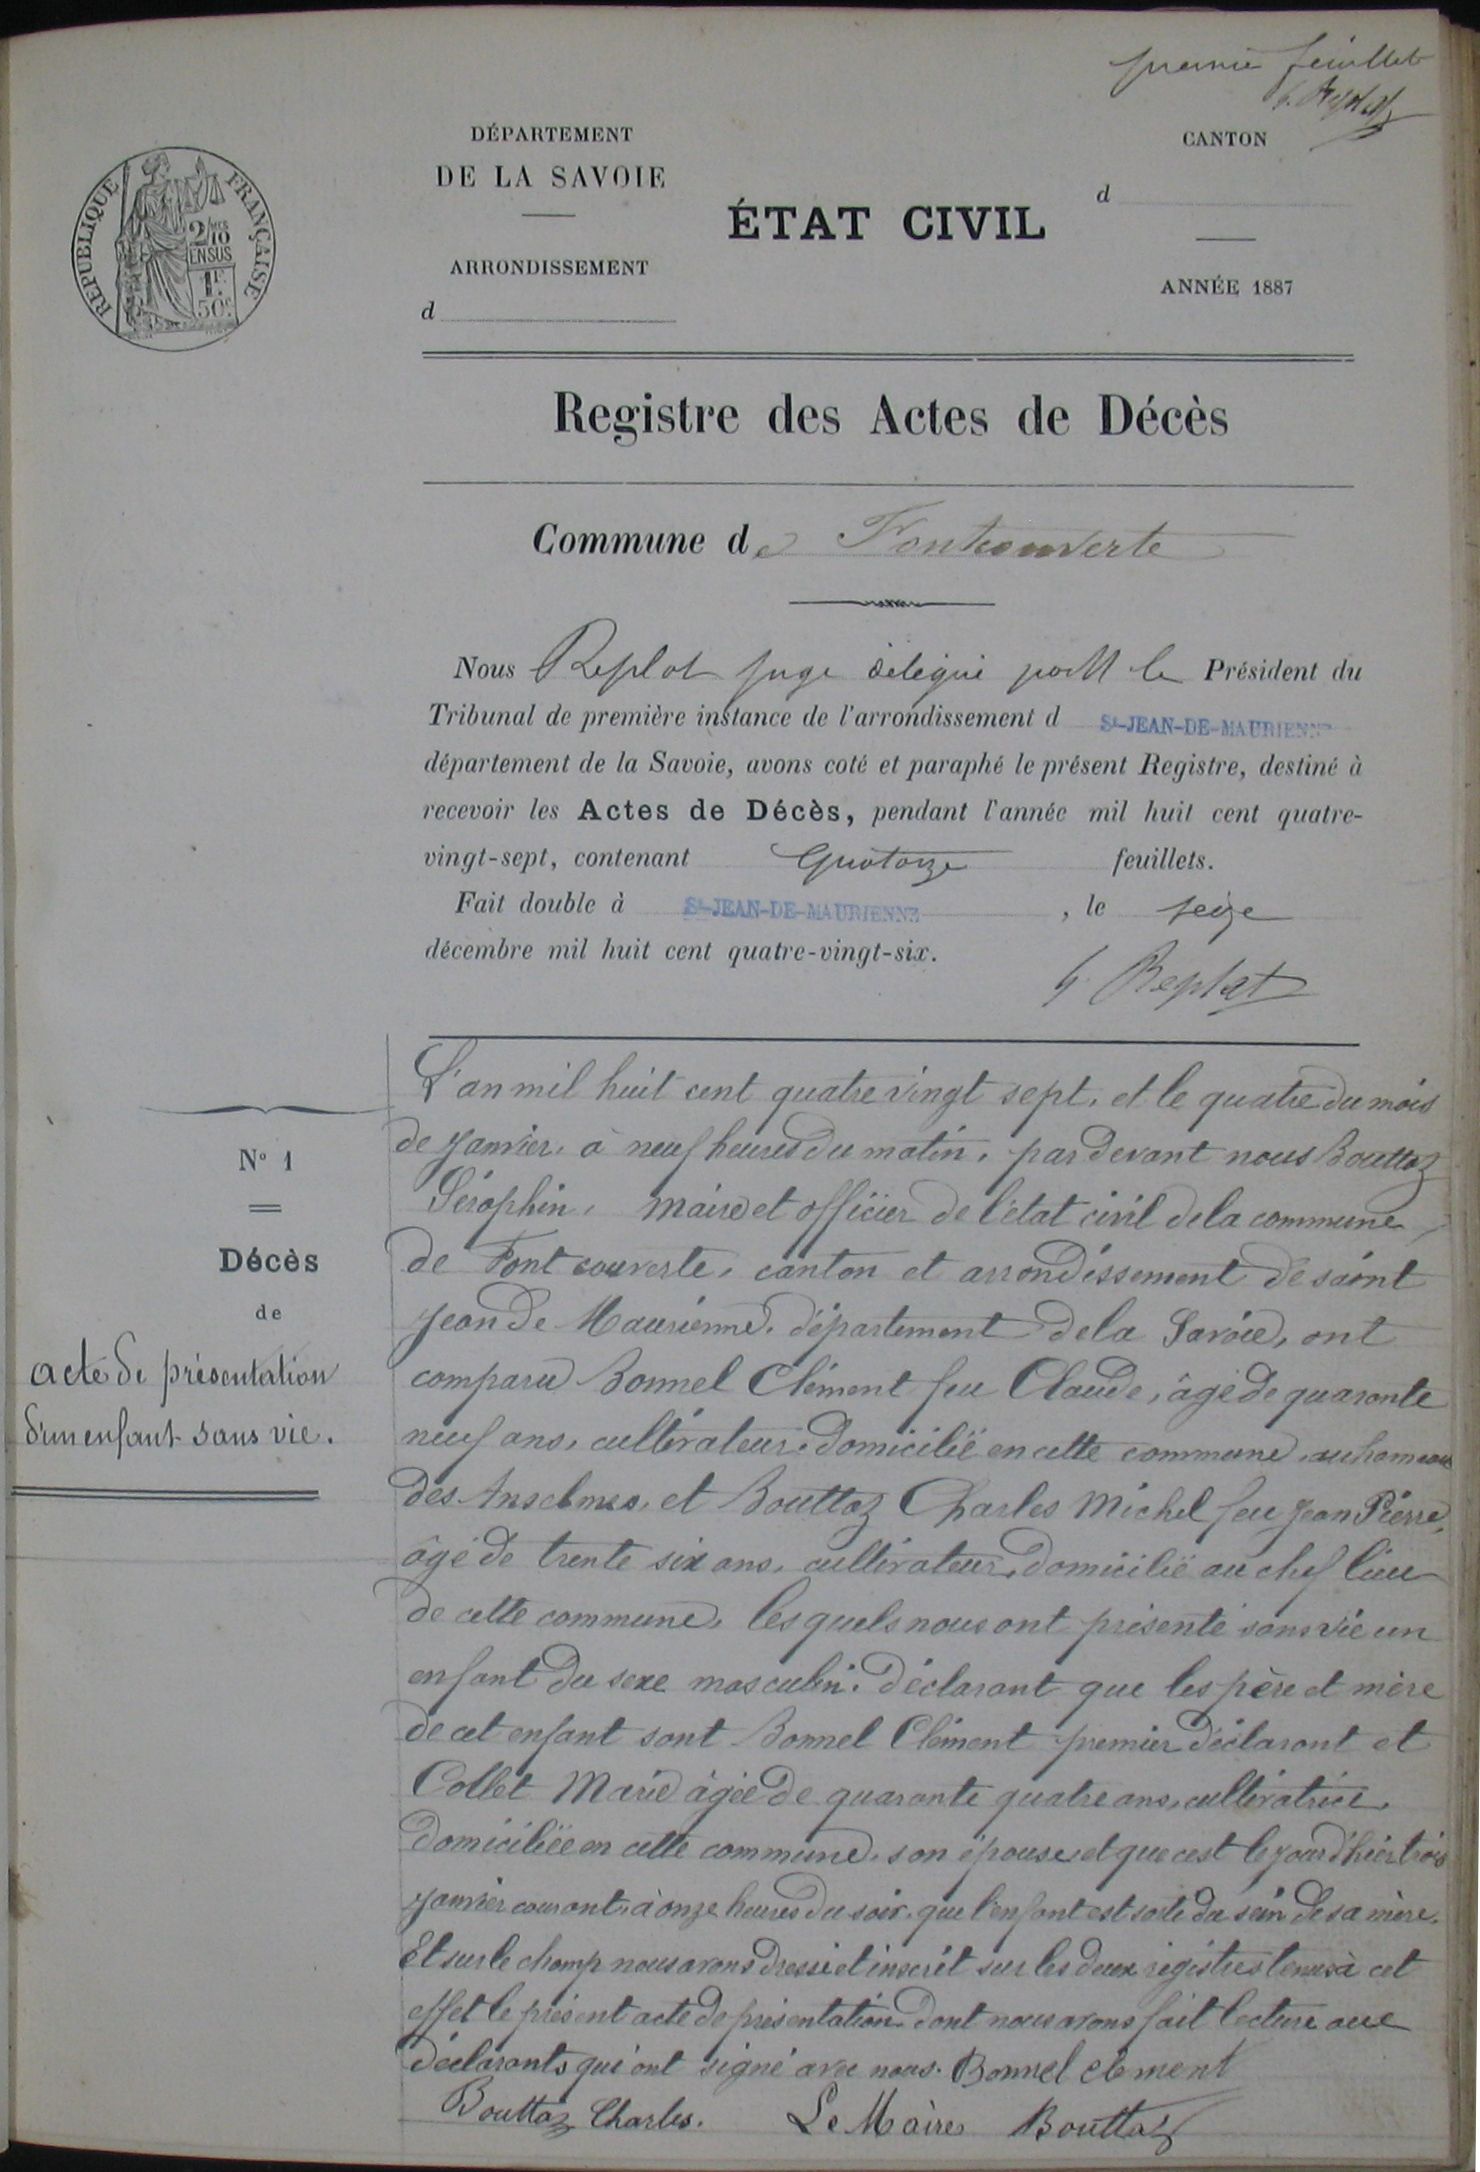 premier feuillet
G. Replat
DÉPARTEMENT
DE LA SAVOIE
CANTON
d
ÉTAT CIVIL
ARRONDISSEMENT
d
ANNÉE 1887
RÉPUBLIQUE FRANÇAISE
2/10
EN SUS
1F.
50c.
Registre des Actes de Décès
Commune de Fontcouverte
Nous Replat juge délégué par M le Président du
Tribunal de première instance de l'arrondissement d St-JEAN-DE-MAURIENNE
département de la Savoie, avons coté et paraphé le présent Registre, destiné à
recevoir les Actes de Décès, pendant l'année mil huit cent quatre-
vingt-sept, contenant quatorze feuillets.
Fait double à St-JEAN-DE-MAURIENNE, le seize
décembre mil huit cent quatre-vingt-six.
G Replat
N° 1
Décès
de
acte de présentation
d'un enfant sans vie.
L'an mil huit cent quatre vingt sept, et le quatre du mois
de Janvier, à neuf heures du matin, par devant nous Bouttaz
Séraphin, maire et officier de l'état civil de la commune
de Fontcouverte, canton et arrondissement de saint
Jean de Maurienne, département de la Savoie, ont
comparu Bonnel Clément feu Claude, âgé de quarante
neuf ans, cultivateur, domicilié en cette commune, au hameau
des Anselmes, et Bouttaz Charles Michel feu Jean Pierre,
âgé de trente six ans, cultivateur, domicilié au chef lieu
de cette commune, lesquels nous ont présenté sans vie un
enfant du sexe masculin. Déclarant que les père et mère
de cet enfant sont Bonnel Clément premier déclarant et
Collet Marie âgée de quarante quatre ans, cultivatrice,
domiciliée en cette commune, son épouse, et que c'est le jour d'hier trois
Janvier courant, à onze heures du soir, que l'enfant est sorti du sein de sa mère.
Et sur le champ nous avons dressé et inscrit sur les deux registres tenus à cet
effet le présent acte de présentation dont nous avons fait lecture aux
déclarants qui ont signé avec nous. Bonnel clément
Bouttaz Charles. Le Maire Bouttaz